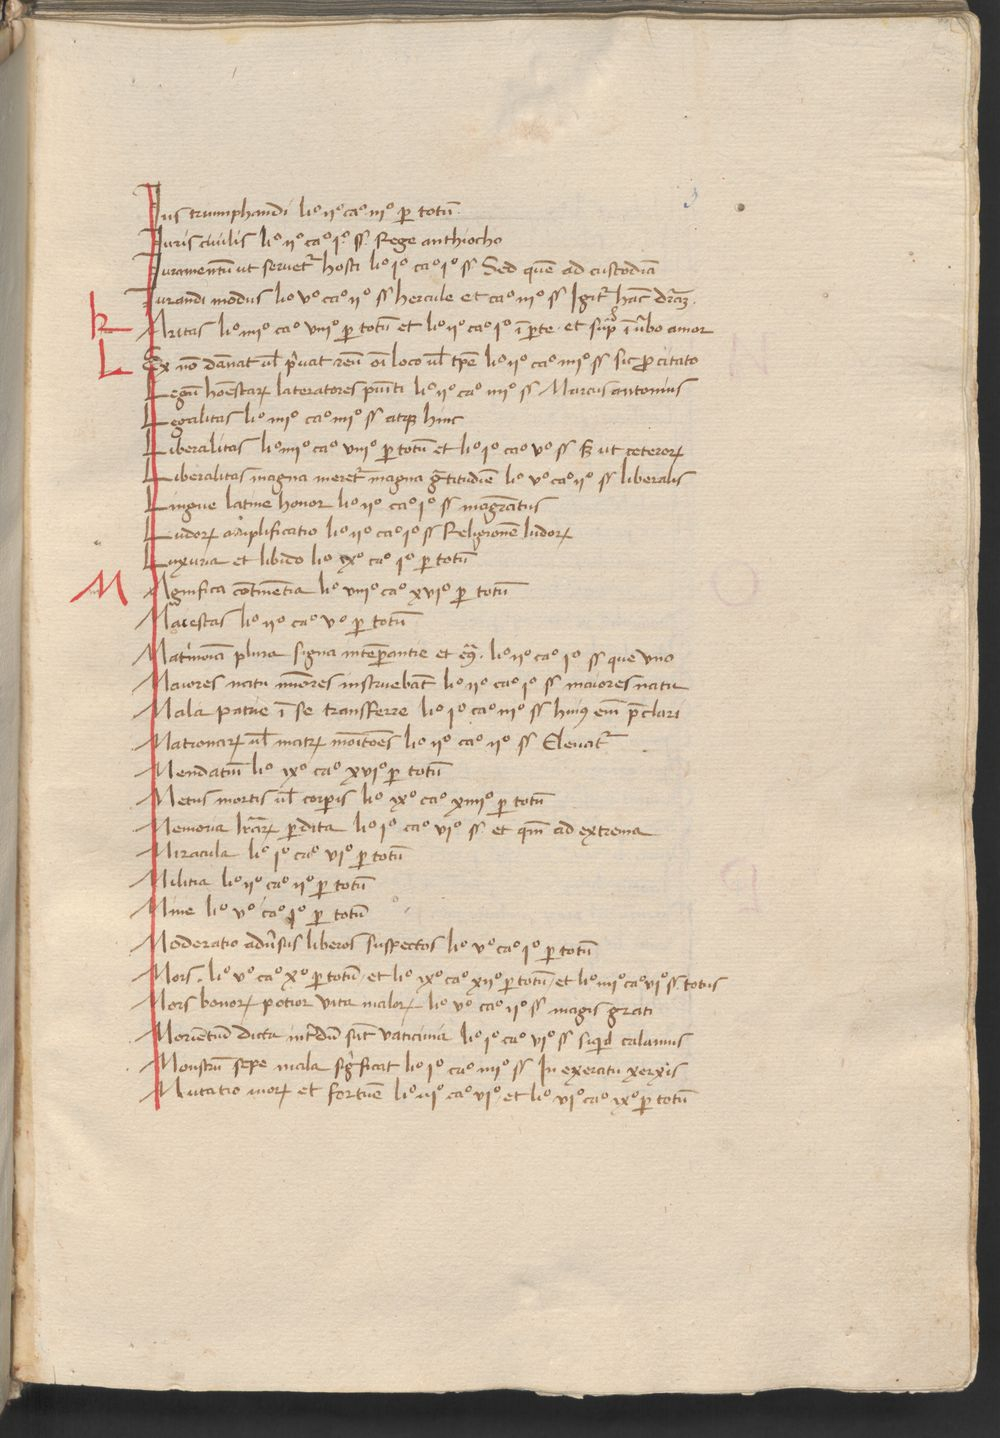 Ius triumphandi li° ij° ca° iij° ꝑ totũ
Iuris ciuilis li° ij° ca° j° ss. Rege anthiocho
Iuramentũ ut seruet᷑ hosti li° j° ca° j° ss Sed quẽ ad custodiã
Iurandi modus li° v° ca° ij° ss hercule et ca° iij° ss Igit᷑ hãc
k Aritas li° iiij° ca° viij° ꝑ totũ et li° ij° ca° j° ĩ ꝑte et supͣ ĩ ũbo amor
L Ex nõ dãnat ul̃ pͥuat reũ oĩ loco ul̃ tp̃e li° ij° ca° iiij° ss sic ꝓ citato
Legũ hõestaꝝ lateratores puniti li° ij° ca° iiij° ss Marcus antonius
Legalitas li° iiij° ca° iiij° ss atqꝫ hinc
Liberalitas li° iiij° ca° viij° ꝑ totũ et li° j° ca° v° ss ut ceteroꝝ
Liberalitas magna meret᷑ magnã gͣtitudiẽ li° v° ca° ij° ss liberalis
Lingue latine honor li° ij° ca° j° ss magͣtus
Ludoꝝ amplificatio li° ij° ca° j° ss Religionẽ ludoꝝ
Luxuria et libido li° ix° ca° j° ꝑ totũ
M Agnifica cõtinẽtia li° viij° ca° xvj° ꝑ totũ
Maiestas li° ij° ca° v° ꝑ totũ
Mat͛moĩa plura signa intẽꝑantie et li° ij° ca° j° ss que uno
Maiores natu miores instruebãt li° ij° ca° j° ss maiores natu
Mala patrie ĩ se transferre li° j° ca° iij° ss huiꝰ eĩ p̃clari
Mationaꝝ ul̃ matꝝ moĩtoẽs li° ij° ca° ij° ss Eleuat᷑
Mendatiũ li° ix° ca° xvj° ꝑ totũ
Metus mortis ul̃ corꝑis li° ix° ca° xiiij° ꝑ totũ
Memoria lr̃aꝝ ꝑdita li° j° ca° vj° ss et qm̃ ad extrema
Miracula li° j° ca° vj° ꝑ totũ
Militia li° ij° ca° ij° ꝑ totũ
Mine li° v° ca° j° ꝑ totũ
Moderatio adũsus liberos suspectos li° v° ca° j° ꝑ totũ
Mors. li° v° ca° x° ꝑ totũ et li° ix° ca° xij° ꝑ totũ et li° iij° ca° vj° ss. totus
Mors bonoꝝ potior vita maloꝝ li° v° ca° ij° ss magis grati
Moriẽtiũ dicta int͛dũ sũt vaticinia li° j° ca° vj° ss calanus
Monstrũ sepe mala sigͥficat li° j° ca° iiij° ss In exercitu xerxis
Mutatio moꝝ et fortũe li° iij° ca° vj° et li° vj° ca° ix° ꝑ totũ